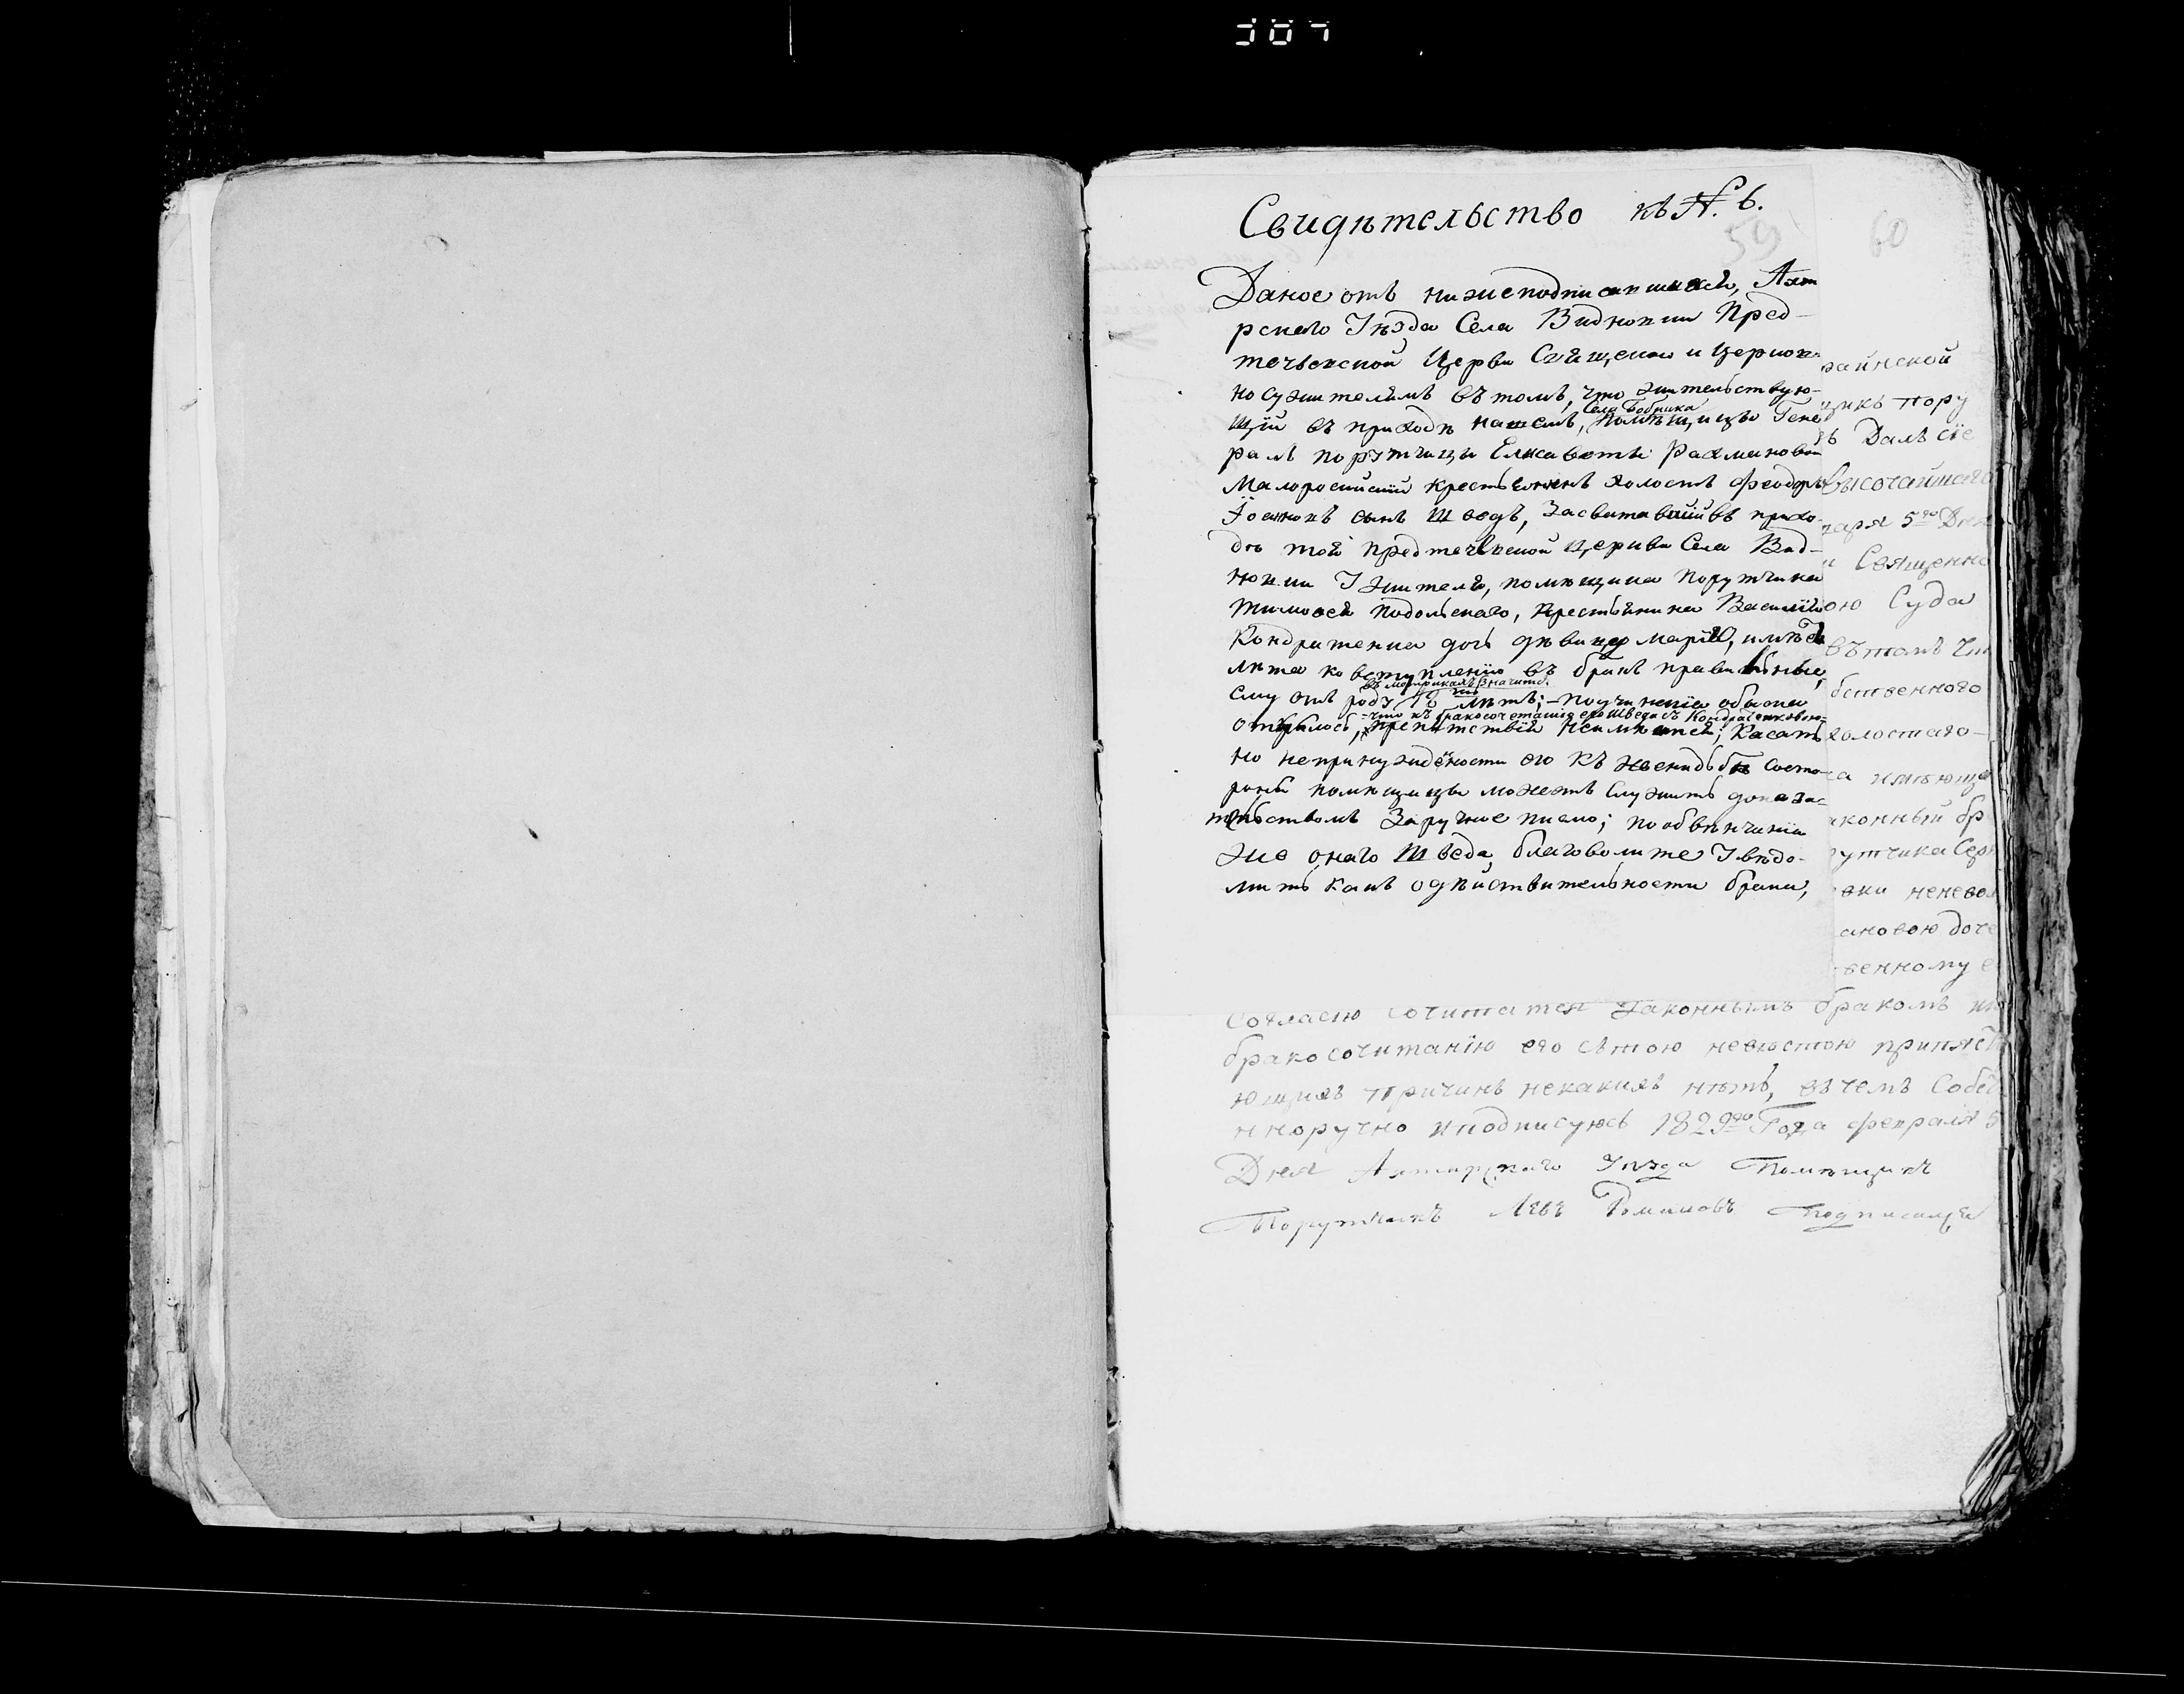 Свидѣтельство къ №. 6.
59
60
Даное отъ нижеподписавшихся, Ахт
рскаго Уѣзда Села Видновки Пред-
теченской Церви Священно и Церков-
но служителямъ въ томъ, что жительствую-
щій въ приходѣ нашемъ, Села Бобрика помѣщицы Гене
ралъ порутчицы Елисаветы Рахмановой
Малоросийскій крестьянинъ холостъ Феодоръ
Іоанновъ сынъ Шведъ, Засватавшій въ прихо-
дѣ той предтеченской церкви Села Вид-
новки Жителя, помѣщика порутчика
Тимофея подольскаго, крестьянина Василія
Кондратенка дочь дѣвицу Марію, имѣетъ
лѣта ко вступленію въ бракъ правильные,
ему отъ роду въ метрикахъ значитъ лѣтъ; - по учиненіи обыска
открылось, что къ бракосочетанію его Шведа съ Кондратенковою препятствій неимѣется; Касатель
но непринуждёности его къ женидьбѣ состо-
роны помѣщицы можетъ служить доказа-
тельствомъ Заручное писмо; по обвѣнчаніи
же онаго Шведа, благоволите Увѣдо-
мить насъ одѣйствительности брака,
раинской
щикъ пору
ъ Далъ сїе
Высочайшаго
варя 5го Дня
и Священно
ою Суда
въ томъ Чи
бственного
холостаго
а имѣюща
аконный бр
рутчика Сер
вки неневол
ановою доче
венному е
согласію сочитатся Законнымъ бракомъ
бракосочитанію его сътою невѣстою припяст
ющихъ причинъ некакихъ нѣтъ, въчемъ Собст
нноручно иподписуюсь 1829го Года февраля 5
Дня Ахтирскаго Уѣзда Помѣщикъ
Порутчикъ Левъ Романовъ Подписался